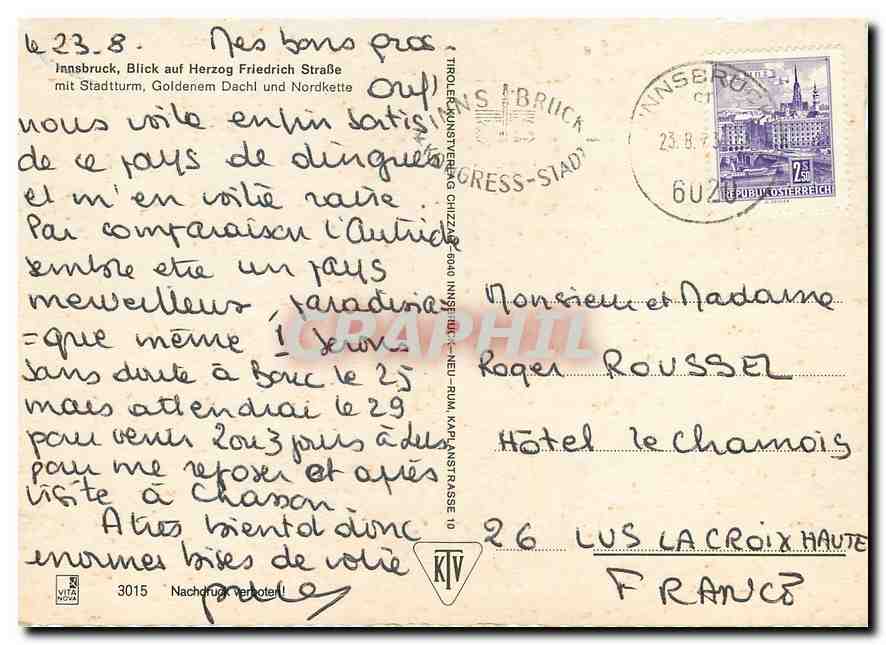 le 23-8. Mes bons gros
Innsbruck, Blick auf Herzog Friedrich Straße
mit Stadtturm, Goldenem Dachl und Nordkette
Ouf!
nous voila enfin sortis
de ce pays de dingues
et m'en voilà
Par comparaison l'Autriche
semble etre un pays
merveilleux, paradisia-
=que même ! Serons
sans doute à Bouc le 25
mais attendrai le 29
pour venir 2 ou 3 jours à Lus
pour me reposer et après
visite à Chasson.
A très bientot donc
enormes bises de votre
VITA NOVA
3015 Nachdruck verboten!
TIROLER KUNSTVERLAG CHIZZALI-6040 INNSBRUCK-NEU-RUM, KAPLANSTRASSE 10
KTV
INNSBRUCK
KONGRESS-STADT
INNSBRUCK
23.8.73
6020
2.50
REPUBLIK ÖSTERREICH
Monsieur et Madame
Roger ROUSSEL
Hôtel le Chamois
26 LUS LA CROIX HAUTE
FRANCE
CPAPHIL